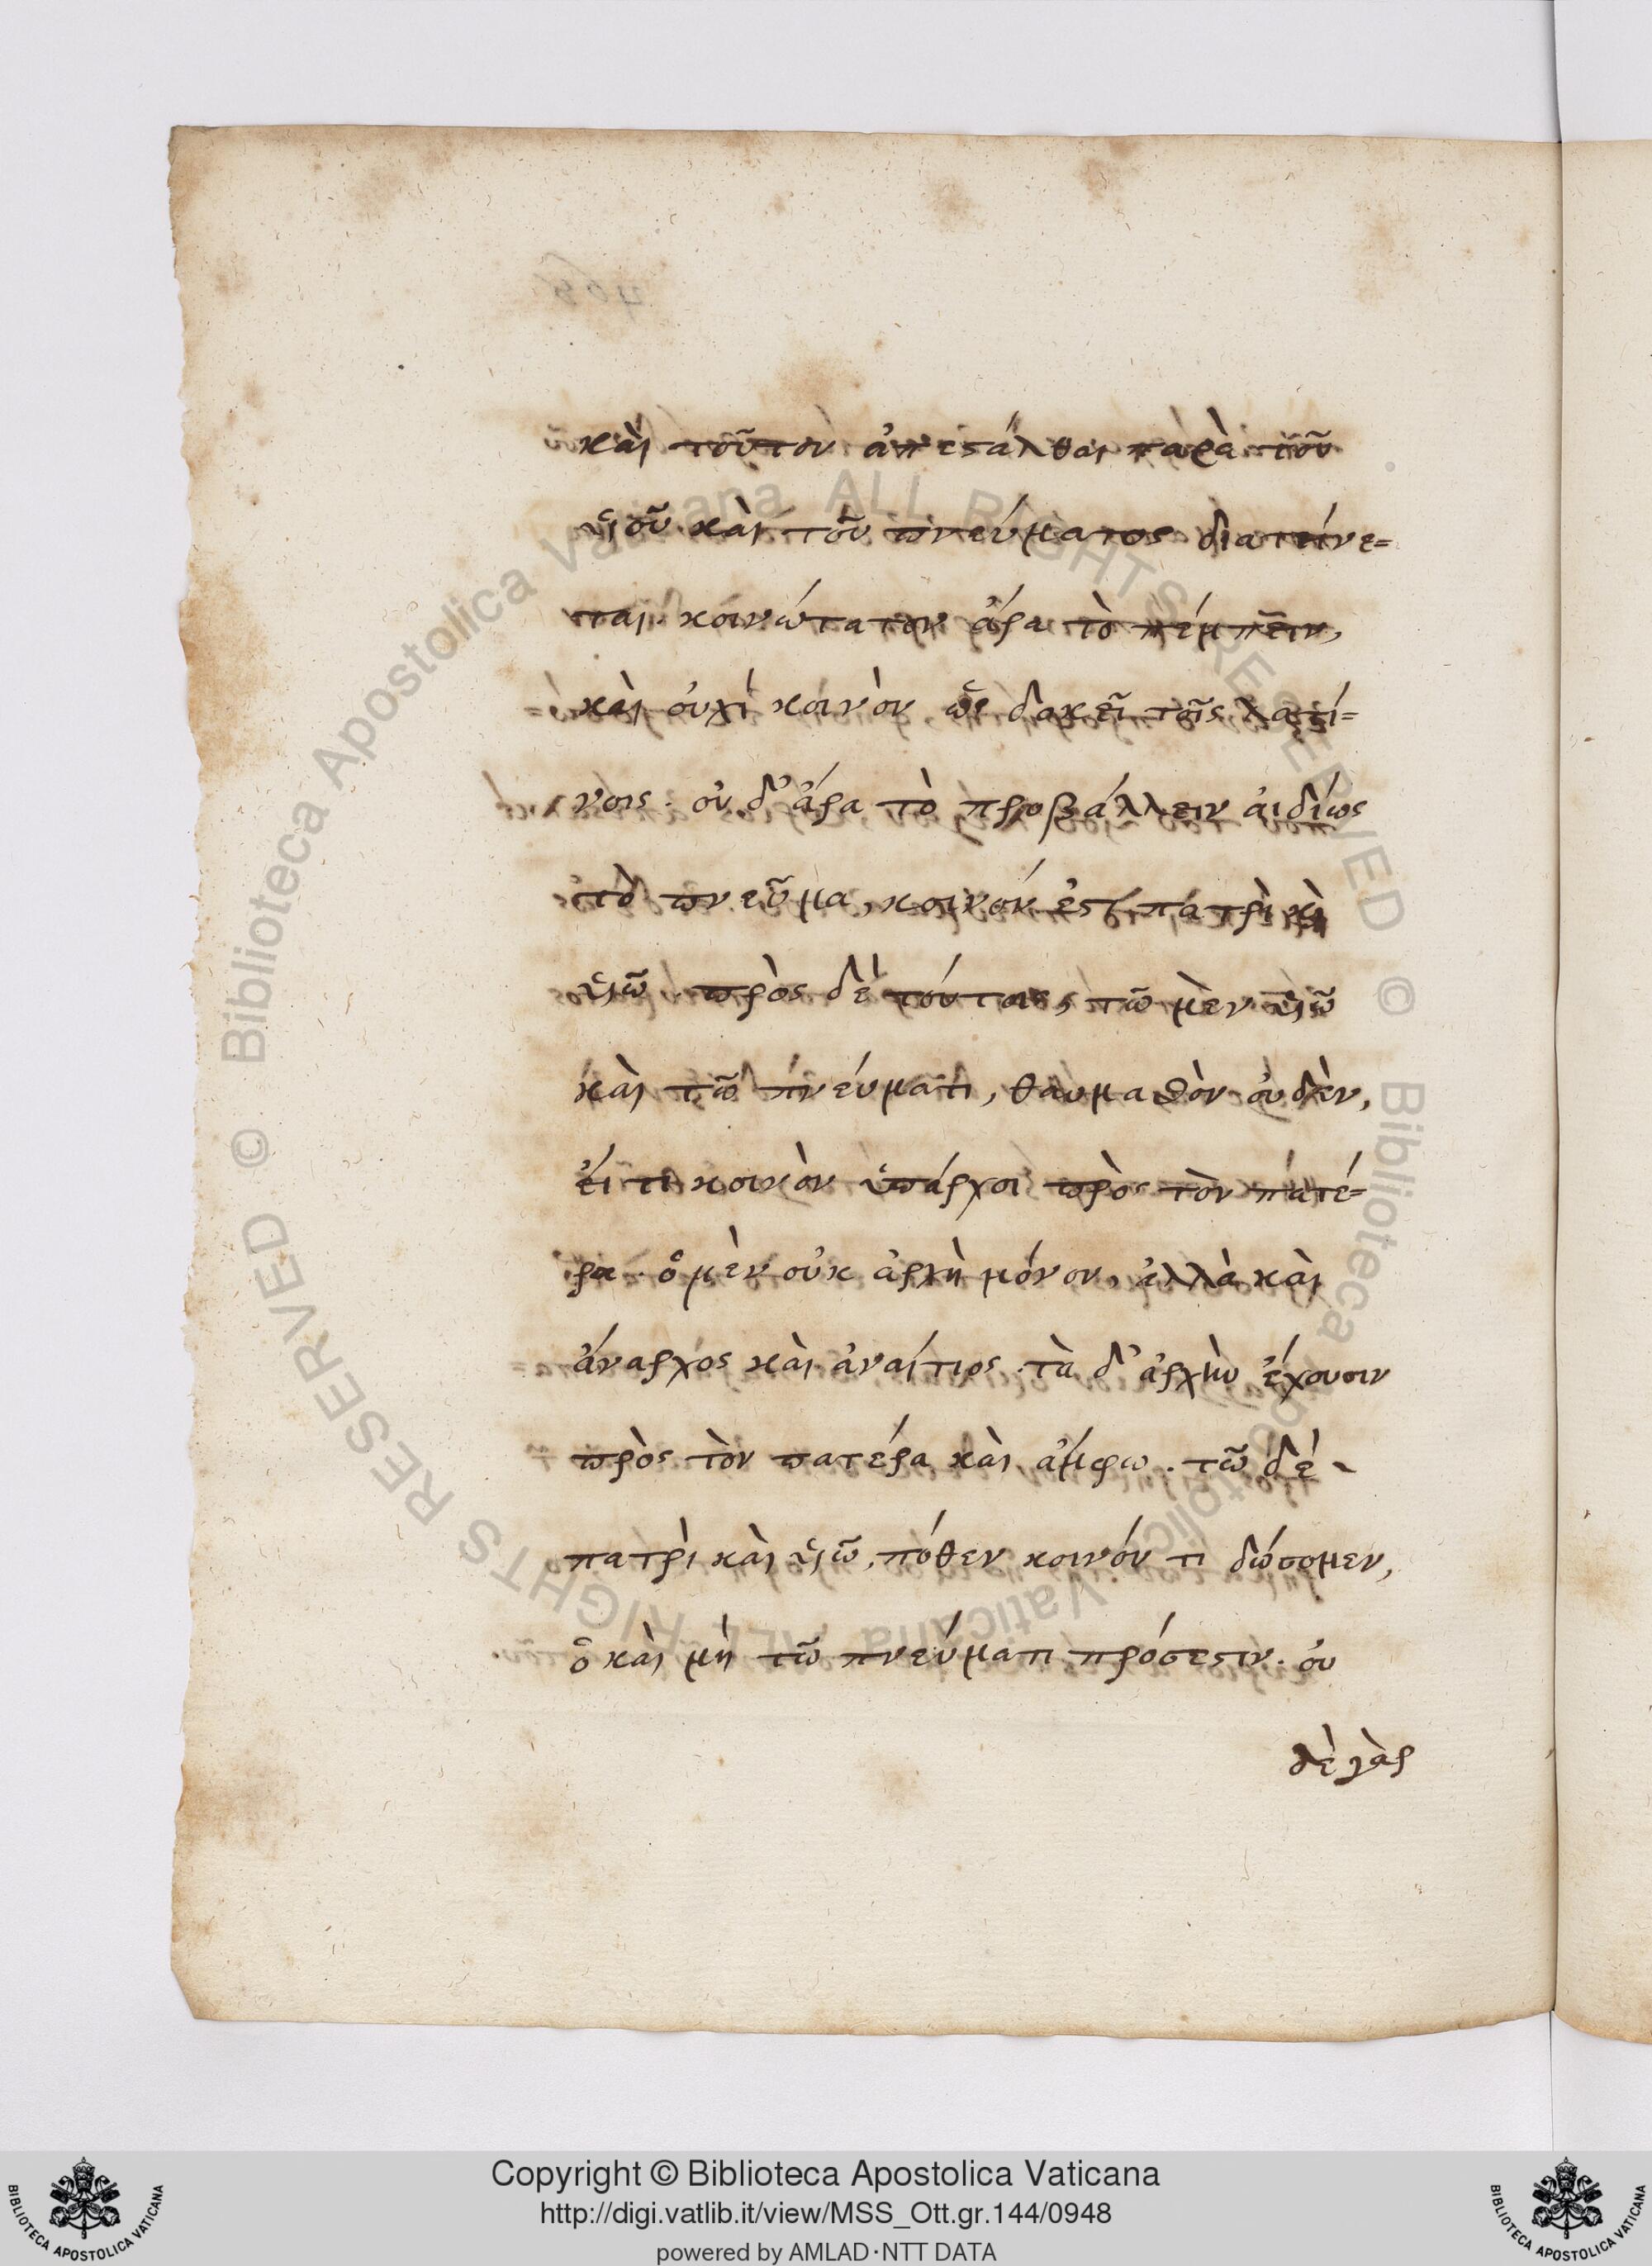 καὶ τοῦτον ἀπεστάλθαι παρὰ τοῦ
ὑιοῦ καὶ τοῦ πνεύματος διατείνε=
ται. κοινώτατον ἄρα τὸ πέμπειν,
καὶ οὐχὶ κοινὸν ὡς δοκεῖ τοῖς λατί=
νοις. οὐδ' ἄρα τὸ προβάλλειν ἀιδίως
τὸ πνεῦμα, κοινόν ἐστι πατρὶ κὶ
ὑιῶ. πρὸς δὲ τούτοις, τῶ μὲν ὑιῶ
καὶ τῶ πνεύματι, θαυμαστὸν οὐδὲν,
εἴ τι κοινὸν ὑπάρχοι πρὸς τὸν πατέ=
ρα. ὁ μὲν οὐκ ἀρχὴ μόνον, ἀλλὰ καὶ
ἄναρχος καὶ ἀναίτιος. τὰ δ' ἀρχὴν ἔχουσιν
πρὸς τὸν πατέρα καὶ ἄμφω. τῶ δέ
πατρὶ καὶ ὑιῶ, πόθεν κοινόν τι δώσομεν,
ὃ καὶ μὴ τῶ πνεύματι πρόσεστιν. οὐ
δὲ γὰρ
Copyright © Biblioteca Apostolica Vaticana
http://digi.vatlib.it/view/MSS_Ott.gr.144/0948
powered by AMLAD·NTT DATA
BIBLIOTECA APOSTOLICA VATICANA
BIBLIOTECA APOSTOLICA VATICANA
© Biblioteca Apostolica Vaticana ALL RIGHTS RESERVED © Biblioteca Apostolica Vaticana ALL RIGHTS RESERVED